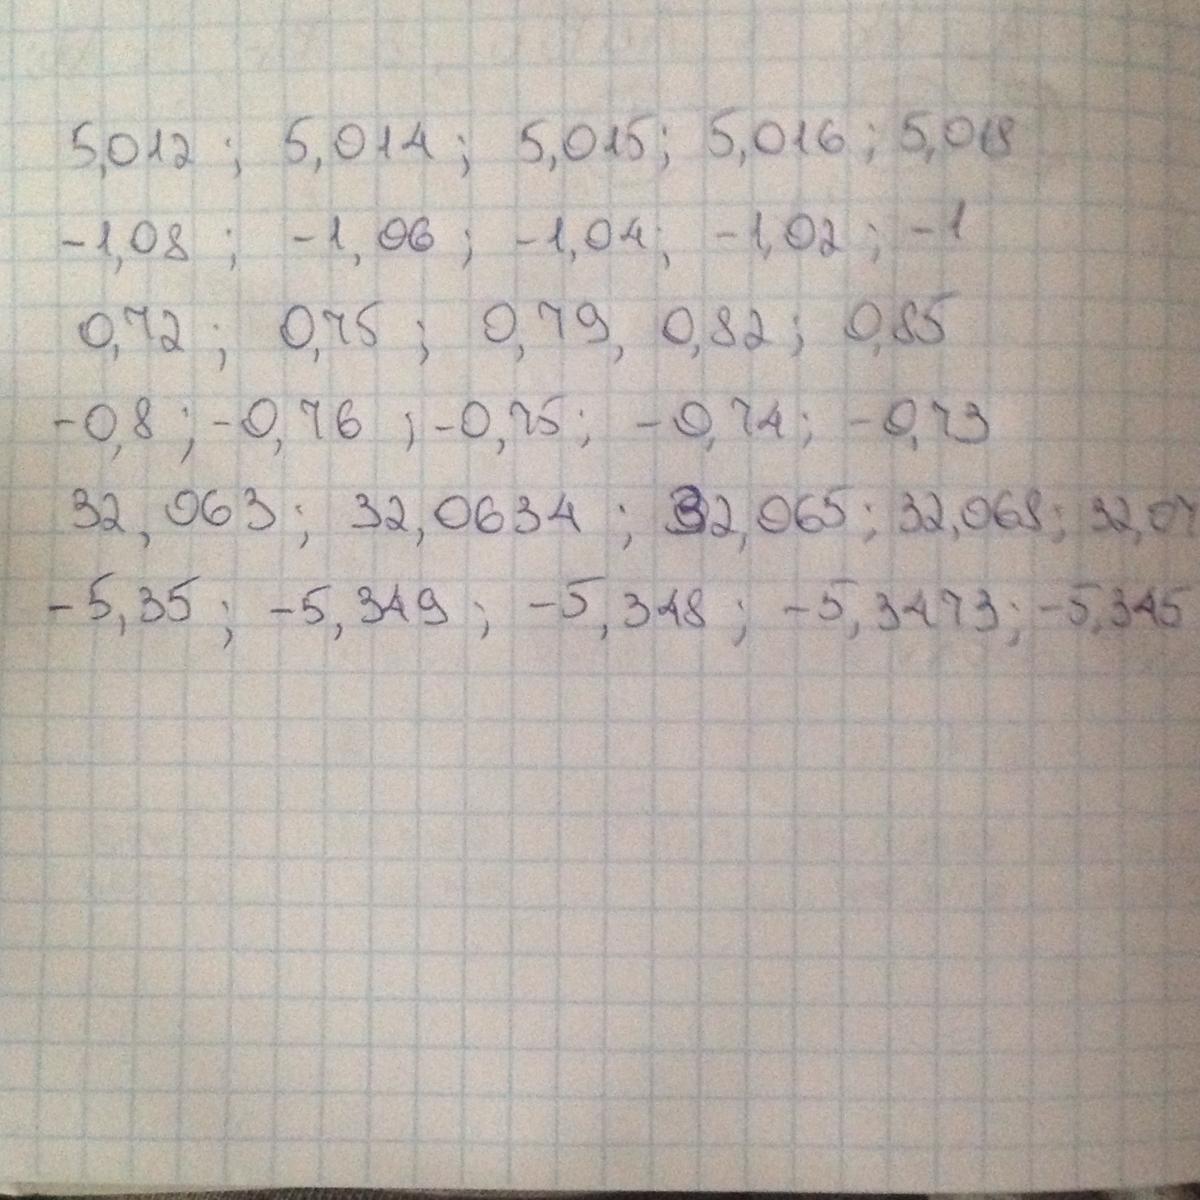 5,012; 5,014; 5,015; 5,016; 5,018
-1,08; -1,06; -1,04; -1,02; -1
0,72; 0,75; 0,79, 0,82; 0,85
-0,8; -0,76; -0,75; -0,74; -0,73
32,063; 32,0634; 32,065; 32,068; 32,07
-5,35; -5,349; -5,348; -5,3473; -5,345